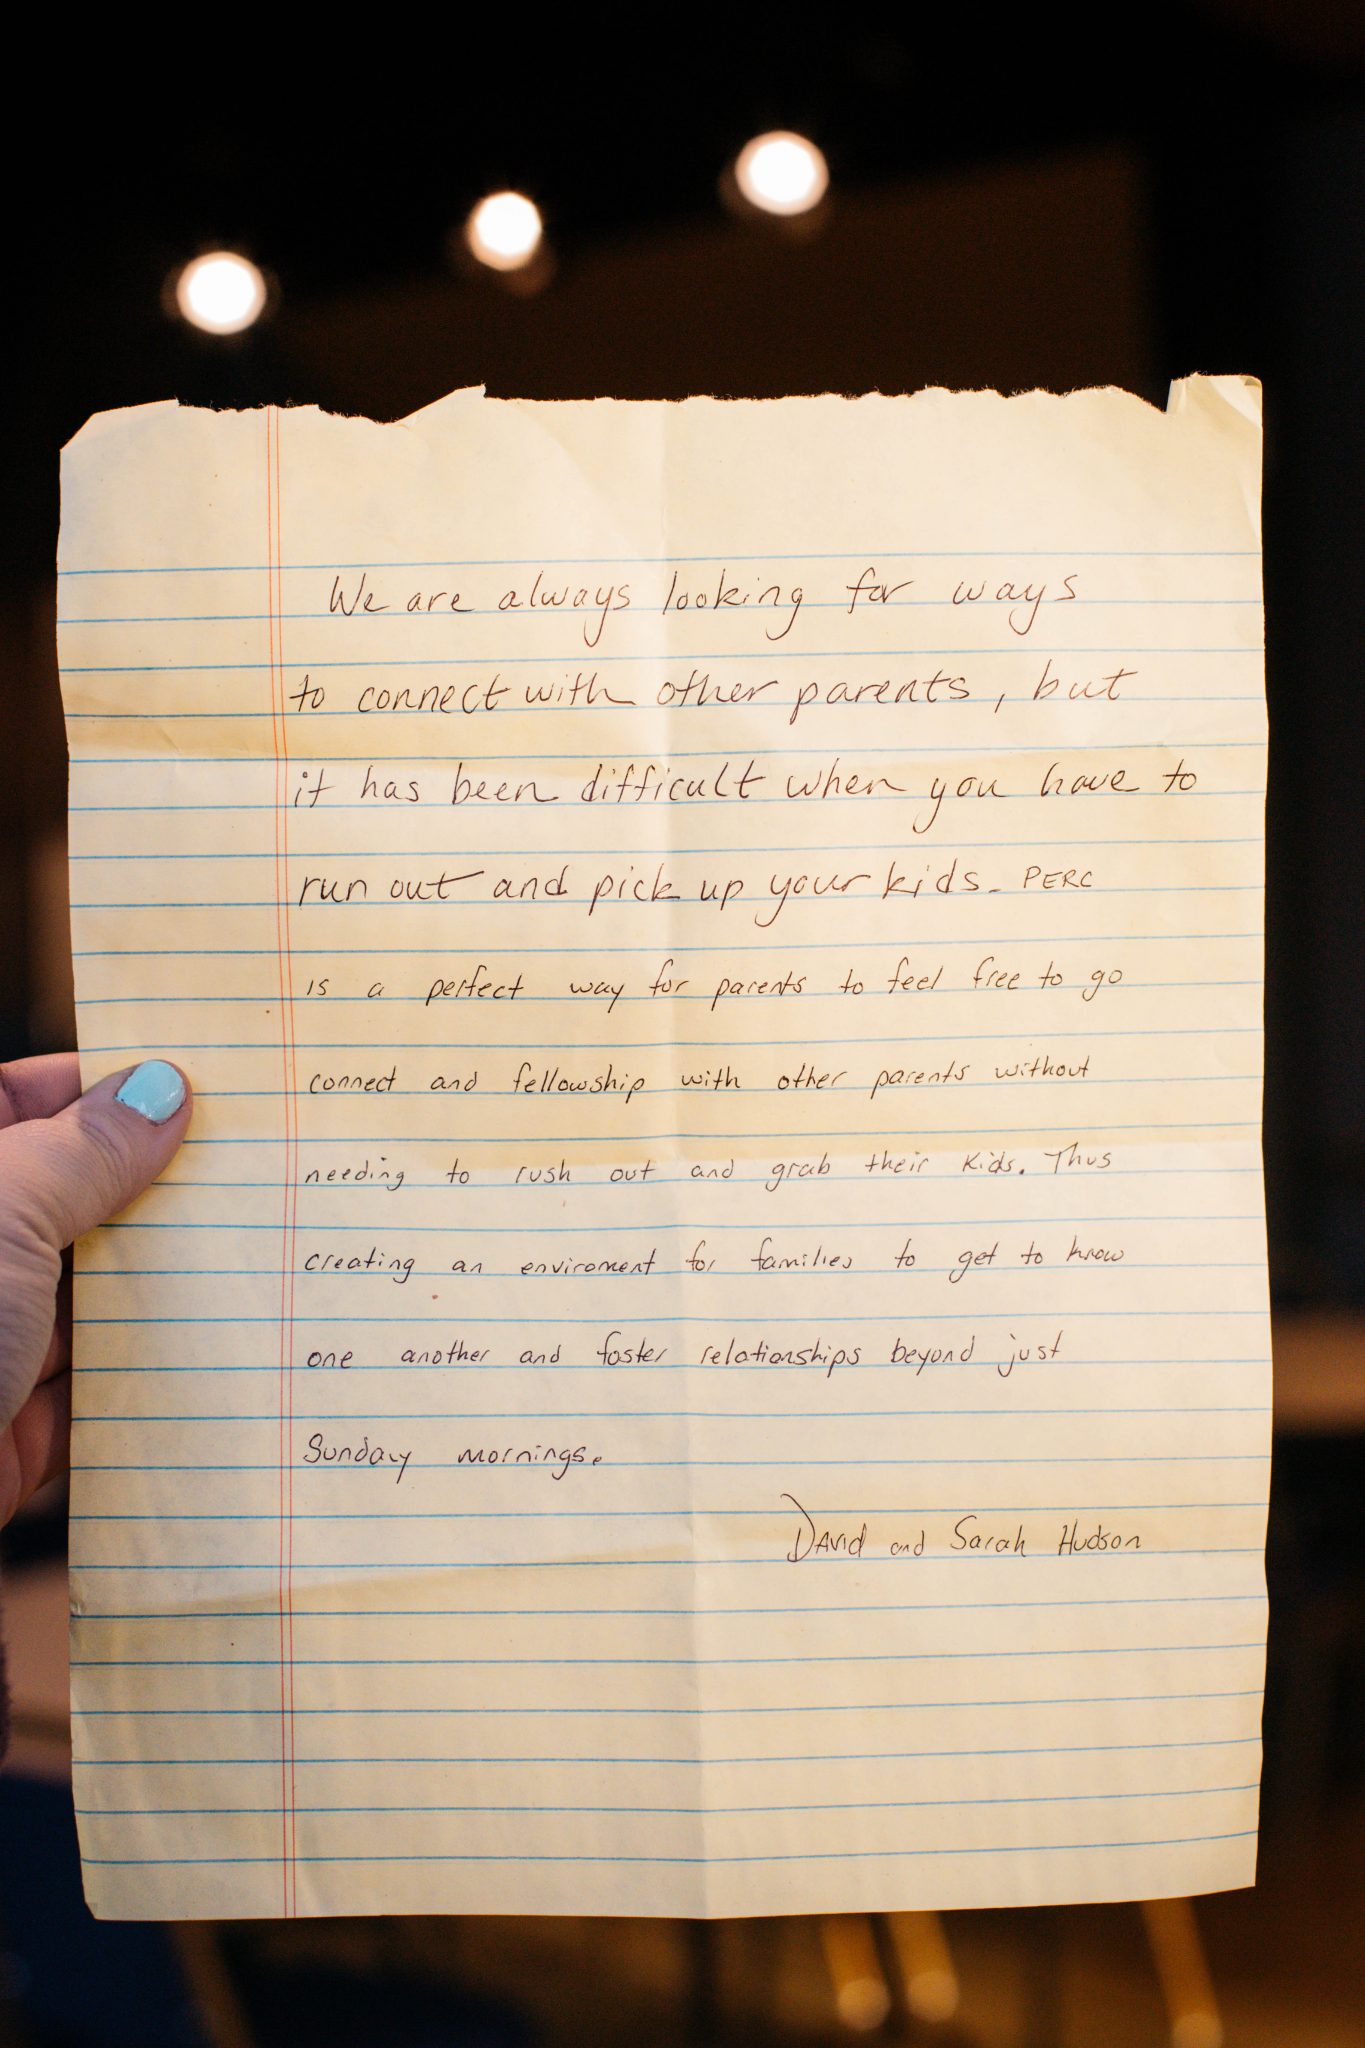 We are always looking for ways
to connect with other parents, but
it has been difficult when you have to
run out and pick up your kids. PERC
is a perfect way for parents to feel free to go
connect and fellowship with other parents without
needing to rush out and grab their kids. Thus
creating an enviroment for families to get to know
one another and foster relationships beyond just
Sunday mornings.
David and Sarah Hudson